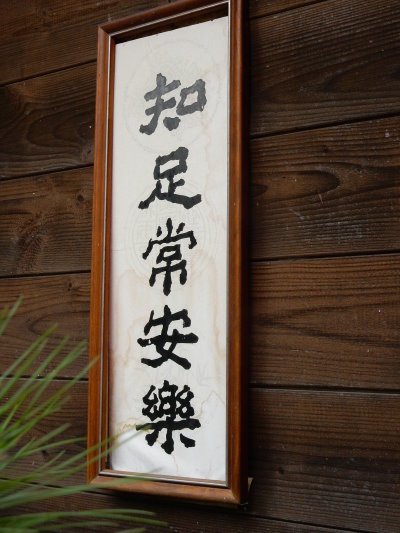 知足常安樂